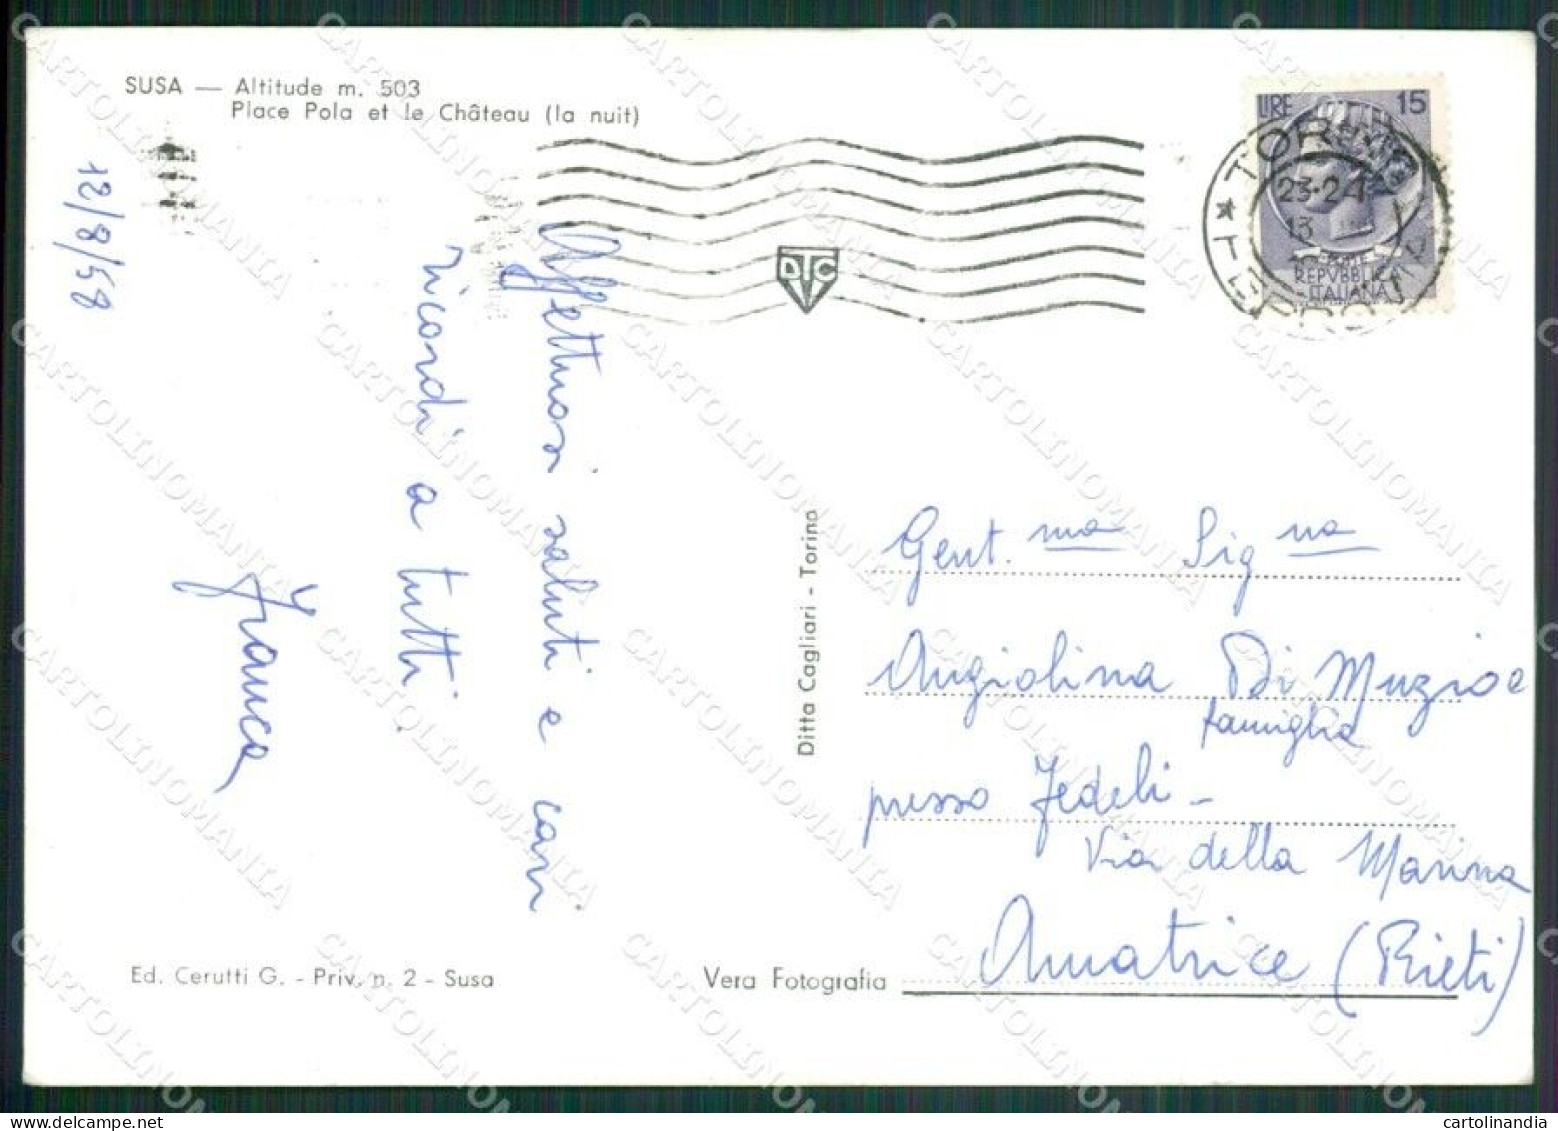 SUSA — Altitude m. 503
Place Pola et le Château (la nuit)
12/8/58
Affettuosi saluti e cari
ricordi a tutti.
Franca
LIRE 15
REPVBBLICA
ITALIANA
23-24
13
DTC
Ditta Cagliari - Torino
Gent.ma Sig.na
Angiolina Di Muzio e
famiglia
presso Fedeli -
Via della Marina
Amatrice (Rieti)
Ed. Cerutti G. - Priv. n. 2 - Susa
Vera Fotografia
CARTOLINOMANIA
cartolinandia